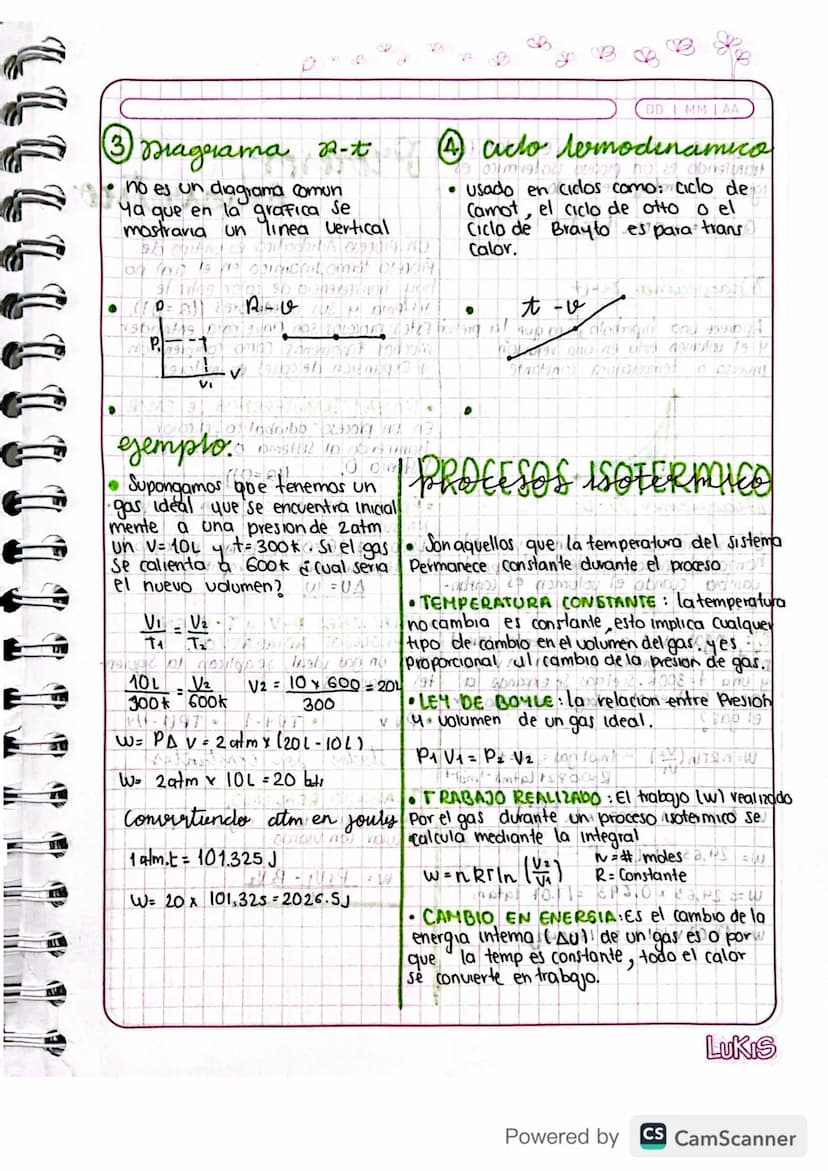 DD | MM | AA
③ Diagrama R-t
• no es un diagrama comun
ya que en la grafica se
mostraria un linea vertical
P
P₁
V₁
V
R - v
ejemplo:
• Supongamos que tenemos un
gas ideal que se encuentra inicial
mente a una presion de 2atm
un V=10L y t=300k si el gas
se calienta a 600k ¿cual seria
el nuevo volumen?
V1/T1 = V2/T2
10L/300k = V2/600k V2 = 10 x 600/300 = 20L
W= PΔV = 2atm x (20L - 10L)
W= 2atm x 10L = 20
Convirtiendo atm en jouls
1 atm.t = 101.325 J
W= 20 x 101,325 = 2026.5J
④ ciclo termodinamico
• usado en ciclos como: ciclo de
Carnot, el ciclo de otto o el
ciclo de Brayto es para trans
calor.
t - v
PROCESOS ISOTERMICO
• Son aquellos que la temperatura del sistema
Permanece constante durante el proceso
• TEMPERATURA CONSTANTE: la temperatura
no cambia es constante, esto implica cualquer
tipo de cambio en el volumen del gas. y es
proporcional al cambio de la presion de gas.
• LEY DE BOYLE: la relacion entre Presion
y volumen de un gas ideal.
P1 V1 = P2 V2
• TRABAJO REALIZADO: El trabajo (w) realizado
Por el gas durante un proceso isotermico se
calcula mediante la integral
W = n R T ln (V2/V1) N = # moles
R = Constante
• CAMBIO EN ENERGIA: Es el cambio de la
energia interna (ΔU) de un gas es 0 por
que la temp es constante, todo el calor
se convierte en trabajo.
LuKiS
Powered by CS CamScanner